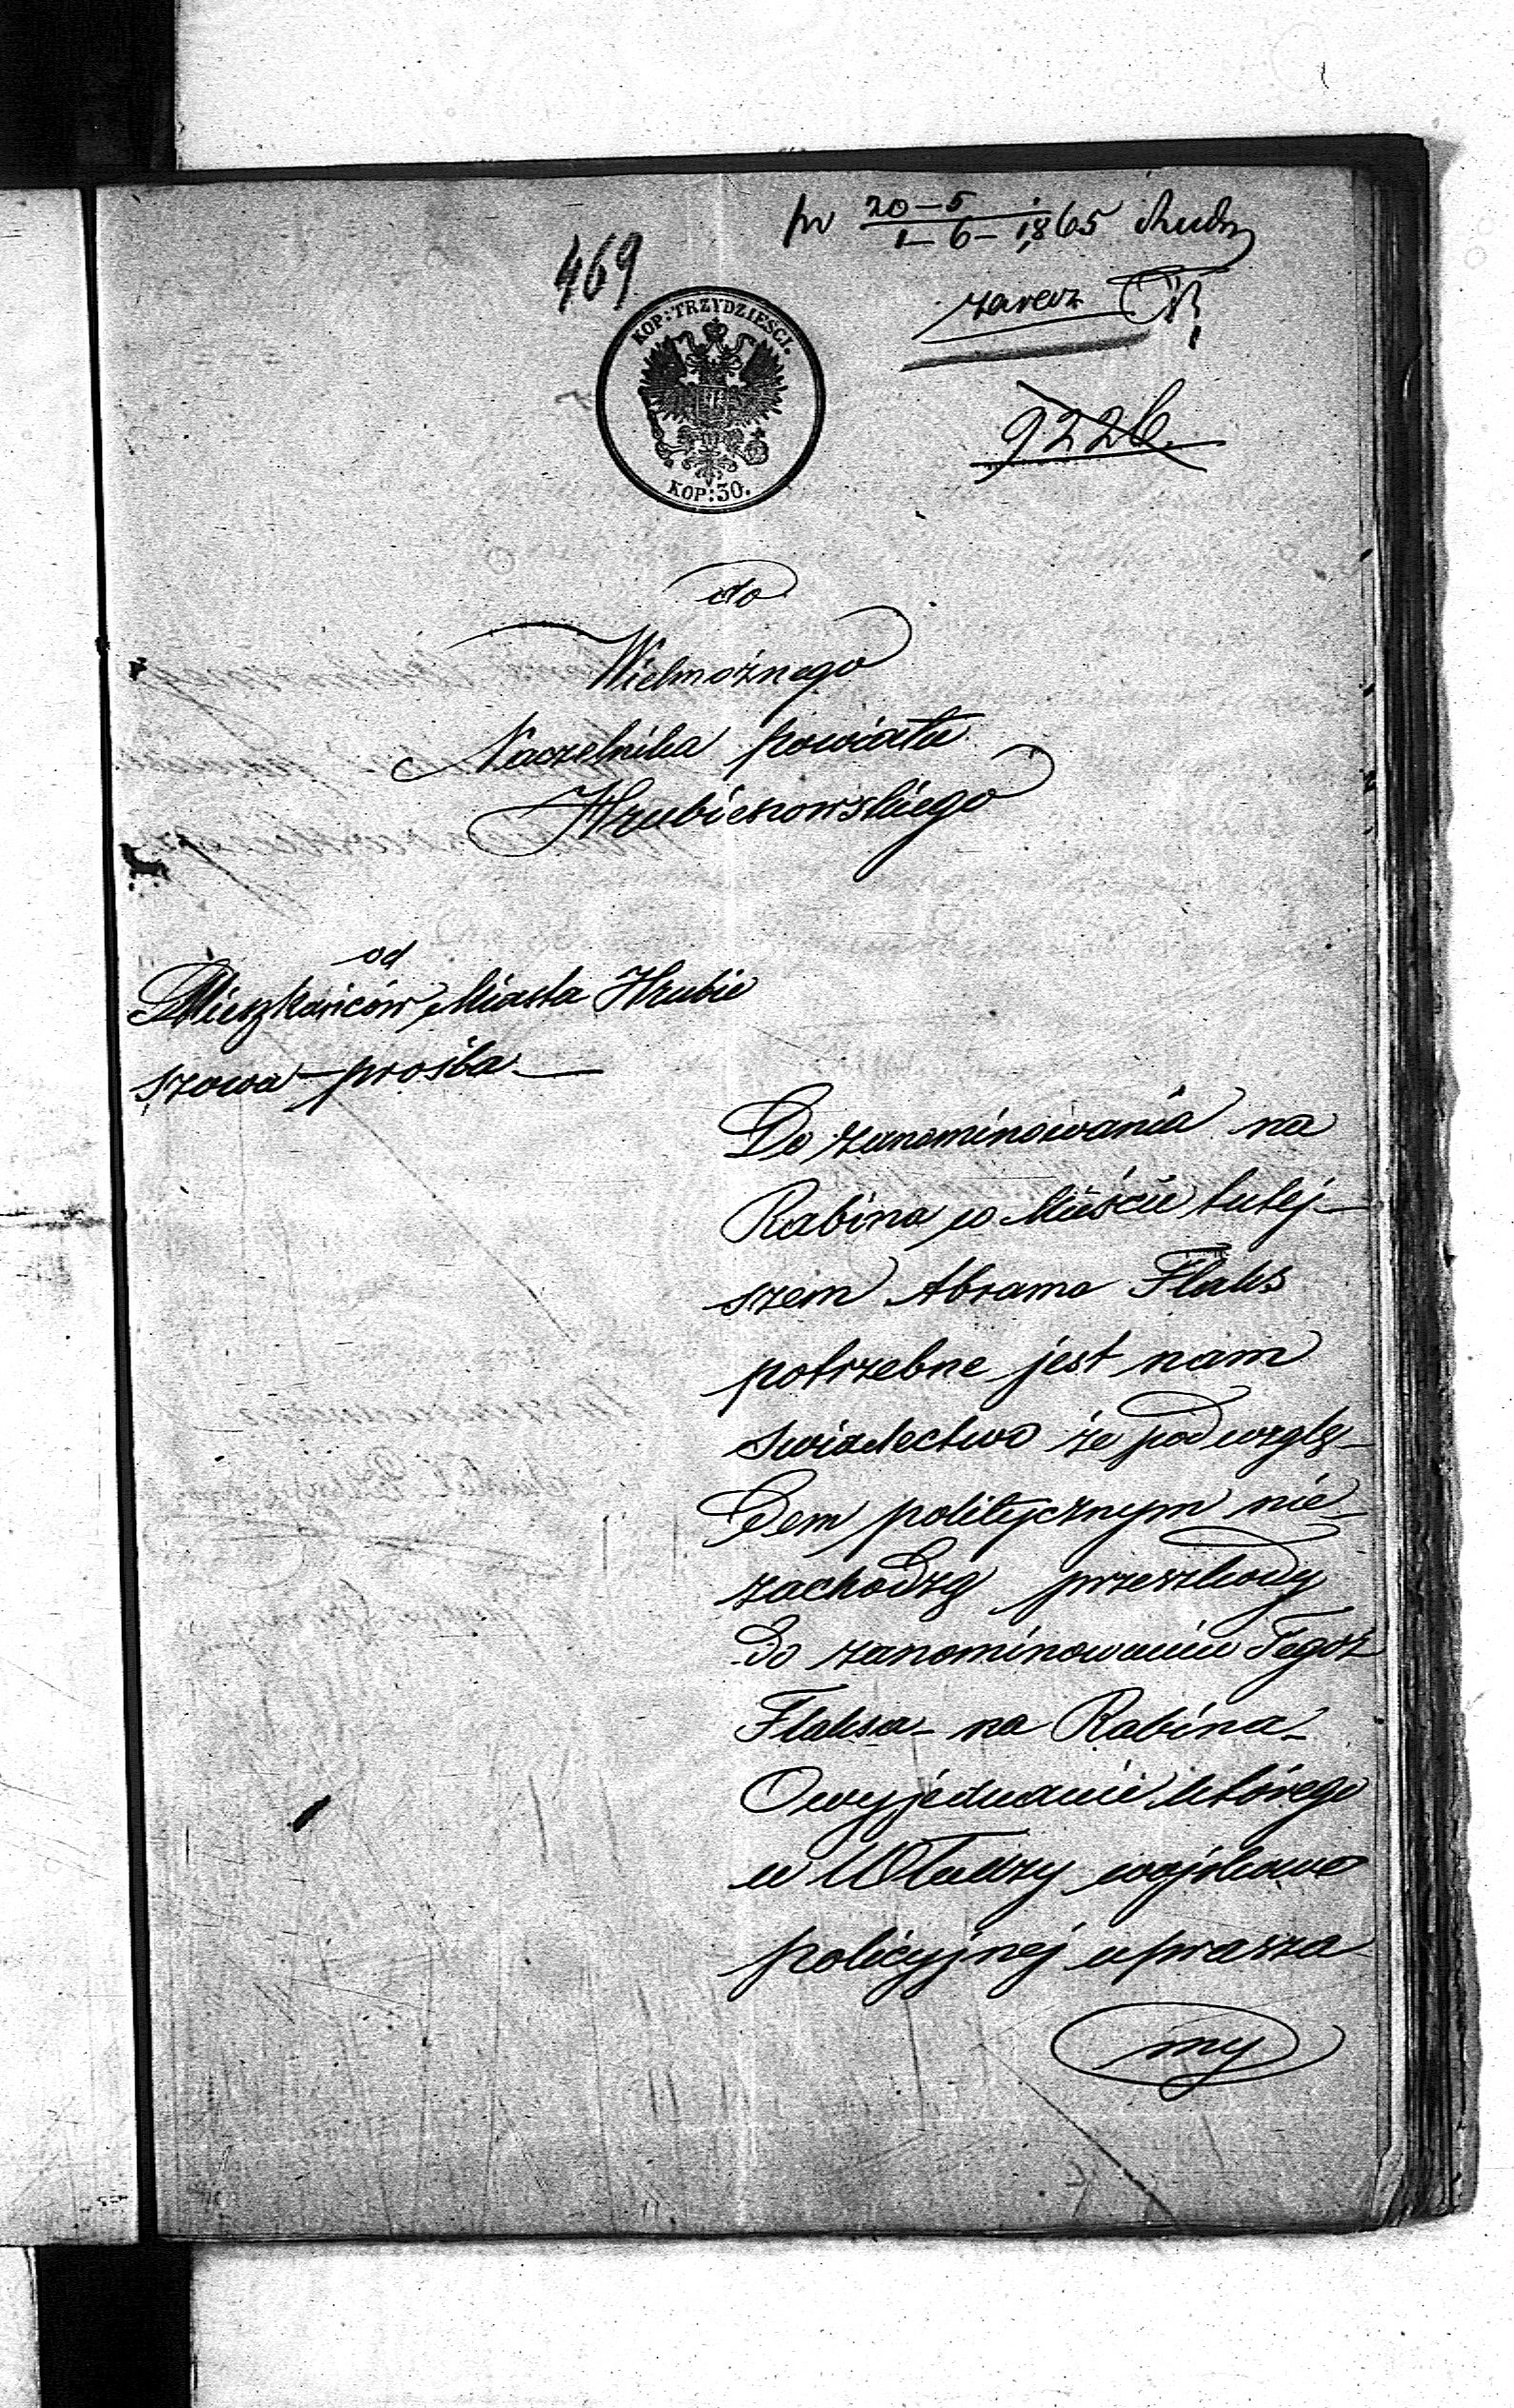 469
20-5
1-6-1865
KOP: TRZYDZIEŚCI.
KOP: 30.
9226
do
Wielmożnego
Naczelnika powiatu
Hrubieszowskiego
od
Mieszkańców Miasta Hrubie
szowa prośba
Do zanominowania na
Rabina w Mieście tutej-
szem Abrama Flaks
potrzebne jest nam
swiadectwo że pod wzglę-
dem politycznym nie-
zachodzą przeszkody
do zanominowania Tegoż
Flaksa na Rabina
O wyjednanie którego
u Władzy wojskowo
policyjnej uprasza
my